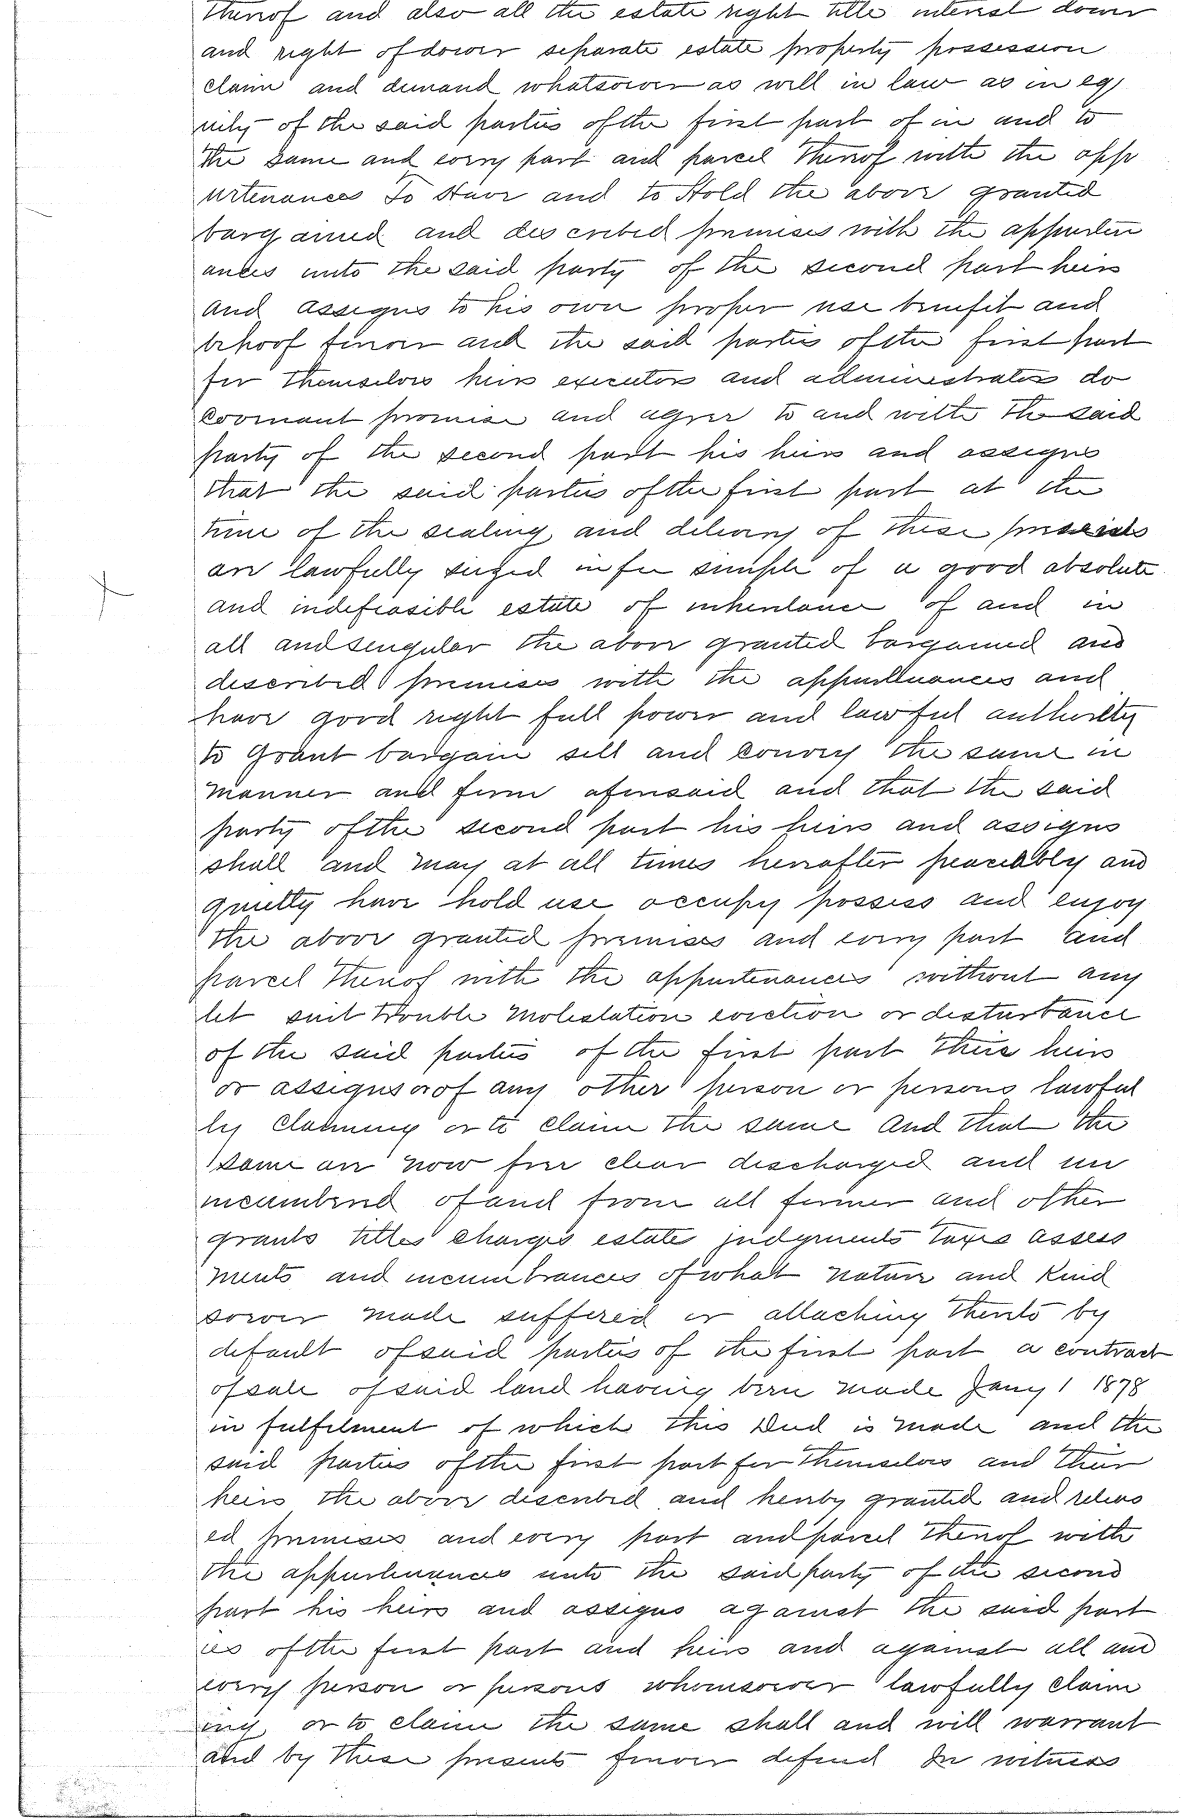 thereof and also all the estate right title interest dower
and right of dower separate estate property possession
claim and demand whatsoever as well in law as in eq
uity of the said parties of the first part of in and to
the same and every part and parcel thereof with the app
urtenances To Have and to Hold the above granted
bargained and described premises with the appurten
ances unto the said party of the second part heirs
and assigns to his own proper use benefit and
behoof forever and the said parties of the first part
for themselves heirs executors and administrators do
covenant promise and agree to and with the said
party of the second part his heirs and assigns
that the said parties of the first part at the
time of the sealing and delivery of these presents
are lawfully seized in fee simple of a good absolute
and indefeasible estate of inheritance of and in
all and singular the above granted bargained and
described premises with the appurtenances and
have good right full power and lawful authority
to grant bargain sell and convey the same in
manner and form aforesaid and that the said
party of the second part his heirs and assigns
shall and may at all times hereafter peaceably and
quietly have hold use occupy possess and enjoy
the above granted premises and every part and
parcel thereof with the appurtenances without any
let suit trouble molestation eviction or disturbance
of the said parties of the first part their heirs
or assigns or of any other person or persons lawful
ly claiming or to claim the same and that the
same are now free clear discharged and un
incumbered of and from all former and other
grants titles charges estate judgments taxes assess
ments and incumbrances of what nature and kind
soever made suffered or attaching thereto by
default of said parties of the first part a contract
of sale of said land having been made Jany 1 1878
in fulfilment of which this Deed is made and the
said parties of the first part for themselves and their
heirs the above described and hereby granted and releas
ed premises and every part and parcel thereof with
the appurtenances unto the said party of the second
part his heirs and assigns against the said part
ies of the first part and heirs and against all and
every person or persons whomsoever lawfully claim
ing or to claim the same shall and will warrant
and by these presents forever defend In witness